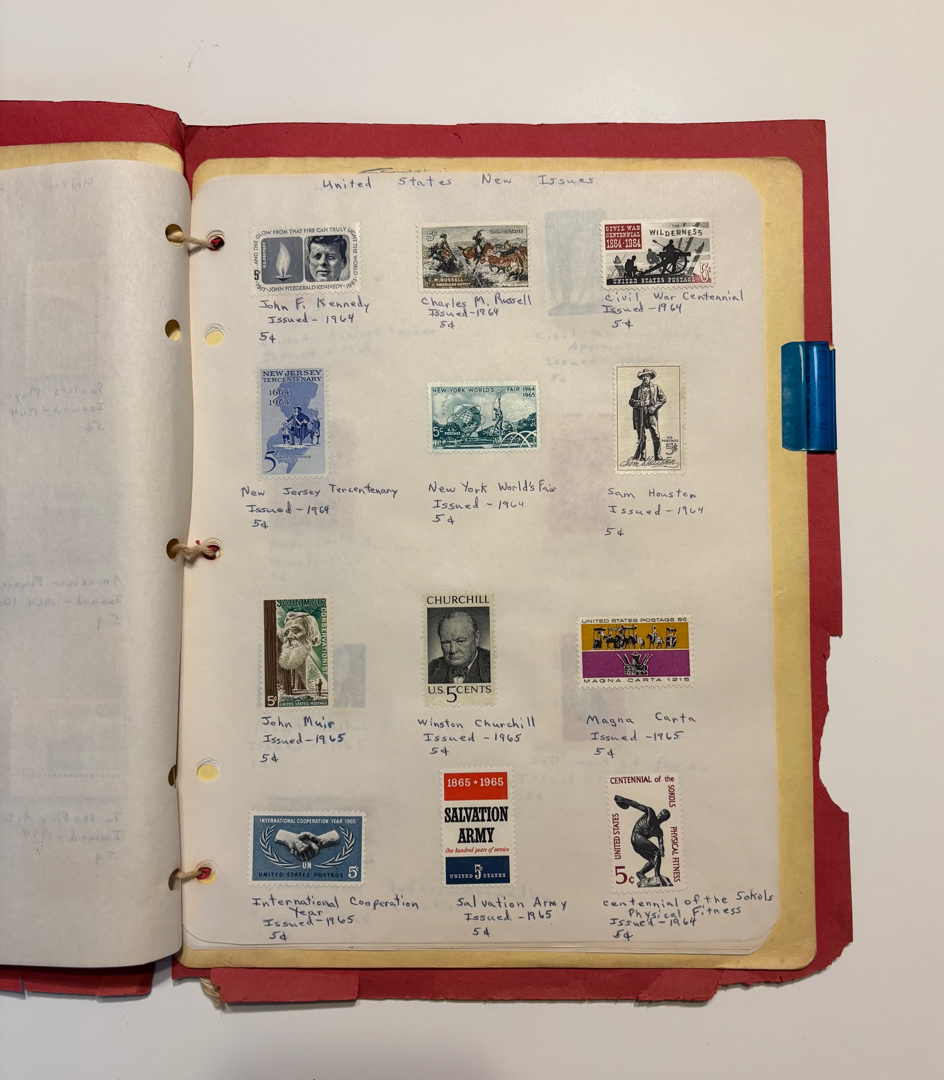 United States New Issues
..AND THE GLOW FROM THAT FIRE CAN TRULY LIGHT THE WORLD
5
1917·JOHN FITZGERALD KENNEDY·1963
John F. Kennedy
Issued - 1964
5¢
5¢
C.M. RUSSELL
AMERICAN ARTIST
Charles M. Russell
Issued - 1964
5¢
CIVIL WAR
CENTENNIAL
1864·1964
THE
WILDERNESS
5¢
UNITED STATES POSTAGE
Civil War Centennial
Issued - 1964
5¢
NEW JERSEY
TERCENTENARY
1664
1964
5¢
UNITED STATES
New Jersey Tercentenary
Issued - 1964
5¢
NEW YORK WORLD'S FAIR 1964
1965
5¢ POSTAGE
New York World's Fair
Issued - 1964
5¢
US
POSTAGE
5¢
Sam Houston
Sam Houston
Issued - 1964
5¢
JOHN MUIR
CONSERVATIONIST
5¢ UNITED STATES POSTAGE
John Muir
Issued - 1965
5¢
CHURCHILL
U.S. 5 CENTS
Winston Churchill
Issued - 1965
5¢
UNITED STATES POSTAGE 5C
MAGNA CARTA 1215
Magna Carta
Issued - 1965
5¢
INTERNATIONAL COOPERATION YEAR 1965
UN
UNITED STATES POSTAGE 5¢
International Cooperation
Year
Issued - 1965
5¢
1865 ★ 1965
SALVATION
ARMY
One hundred years of service
UNITED 5¢ STATES
Salvation Army
Issued - 1965
5¢
CENTENNIAL of the SOKOLS
UNITED STATES
PHYSICAL FITNESS
5¢
centennial of the Sokols
Physical Fitness
Issued - 1964
5¢